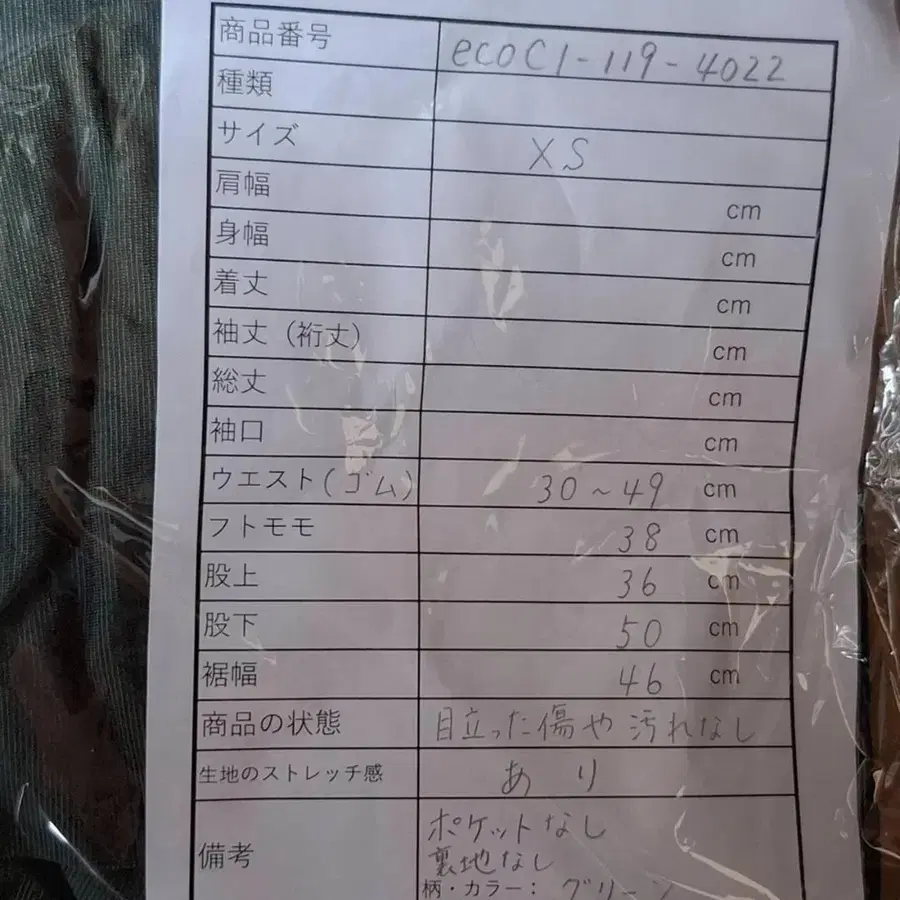 商品番号 ecoC1-119-4022
種類
サイズ XS
肩幅 cm
身幅 cm
着丈 cm
袖丈（裄丈） cm
総丈 cm
袖口 cm
ウエスト(ゴム) 30~49 cm
フトモモ 38 cm
股上 36 cm
股下 50 cm
裾幅 46 cm
商品の状態 目立った傷や汚れなし
生地のストレッチ感 あり
備考 ポケットなし
裏地なし
柄・カラー： グリーン